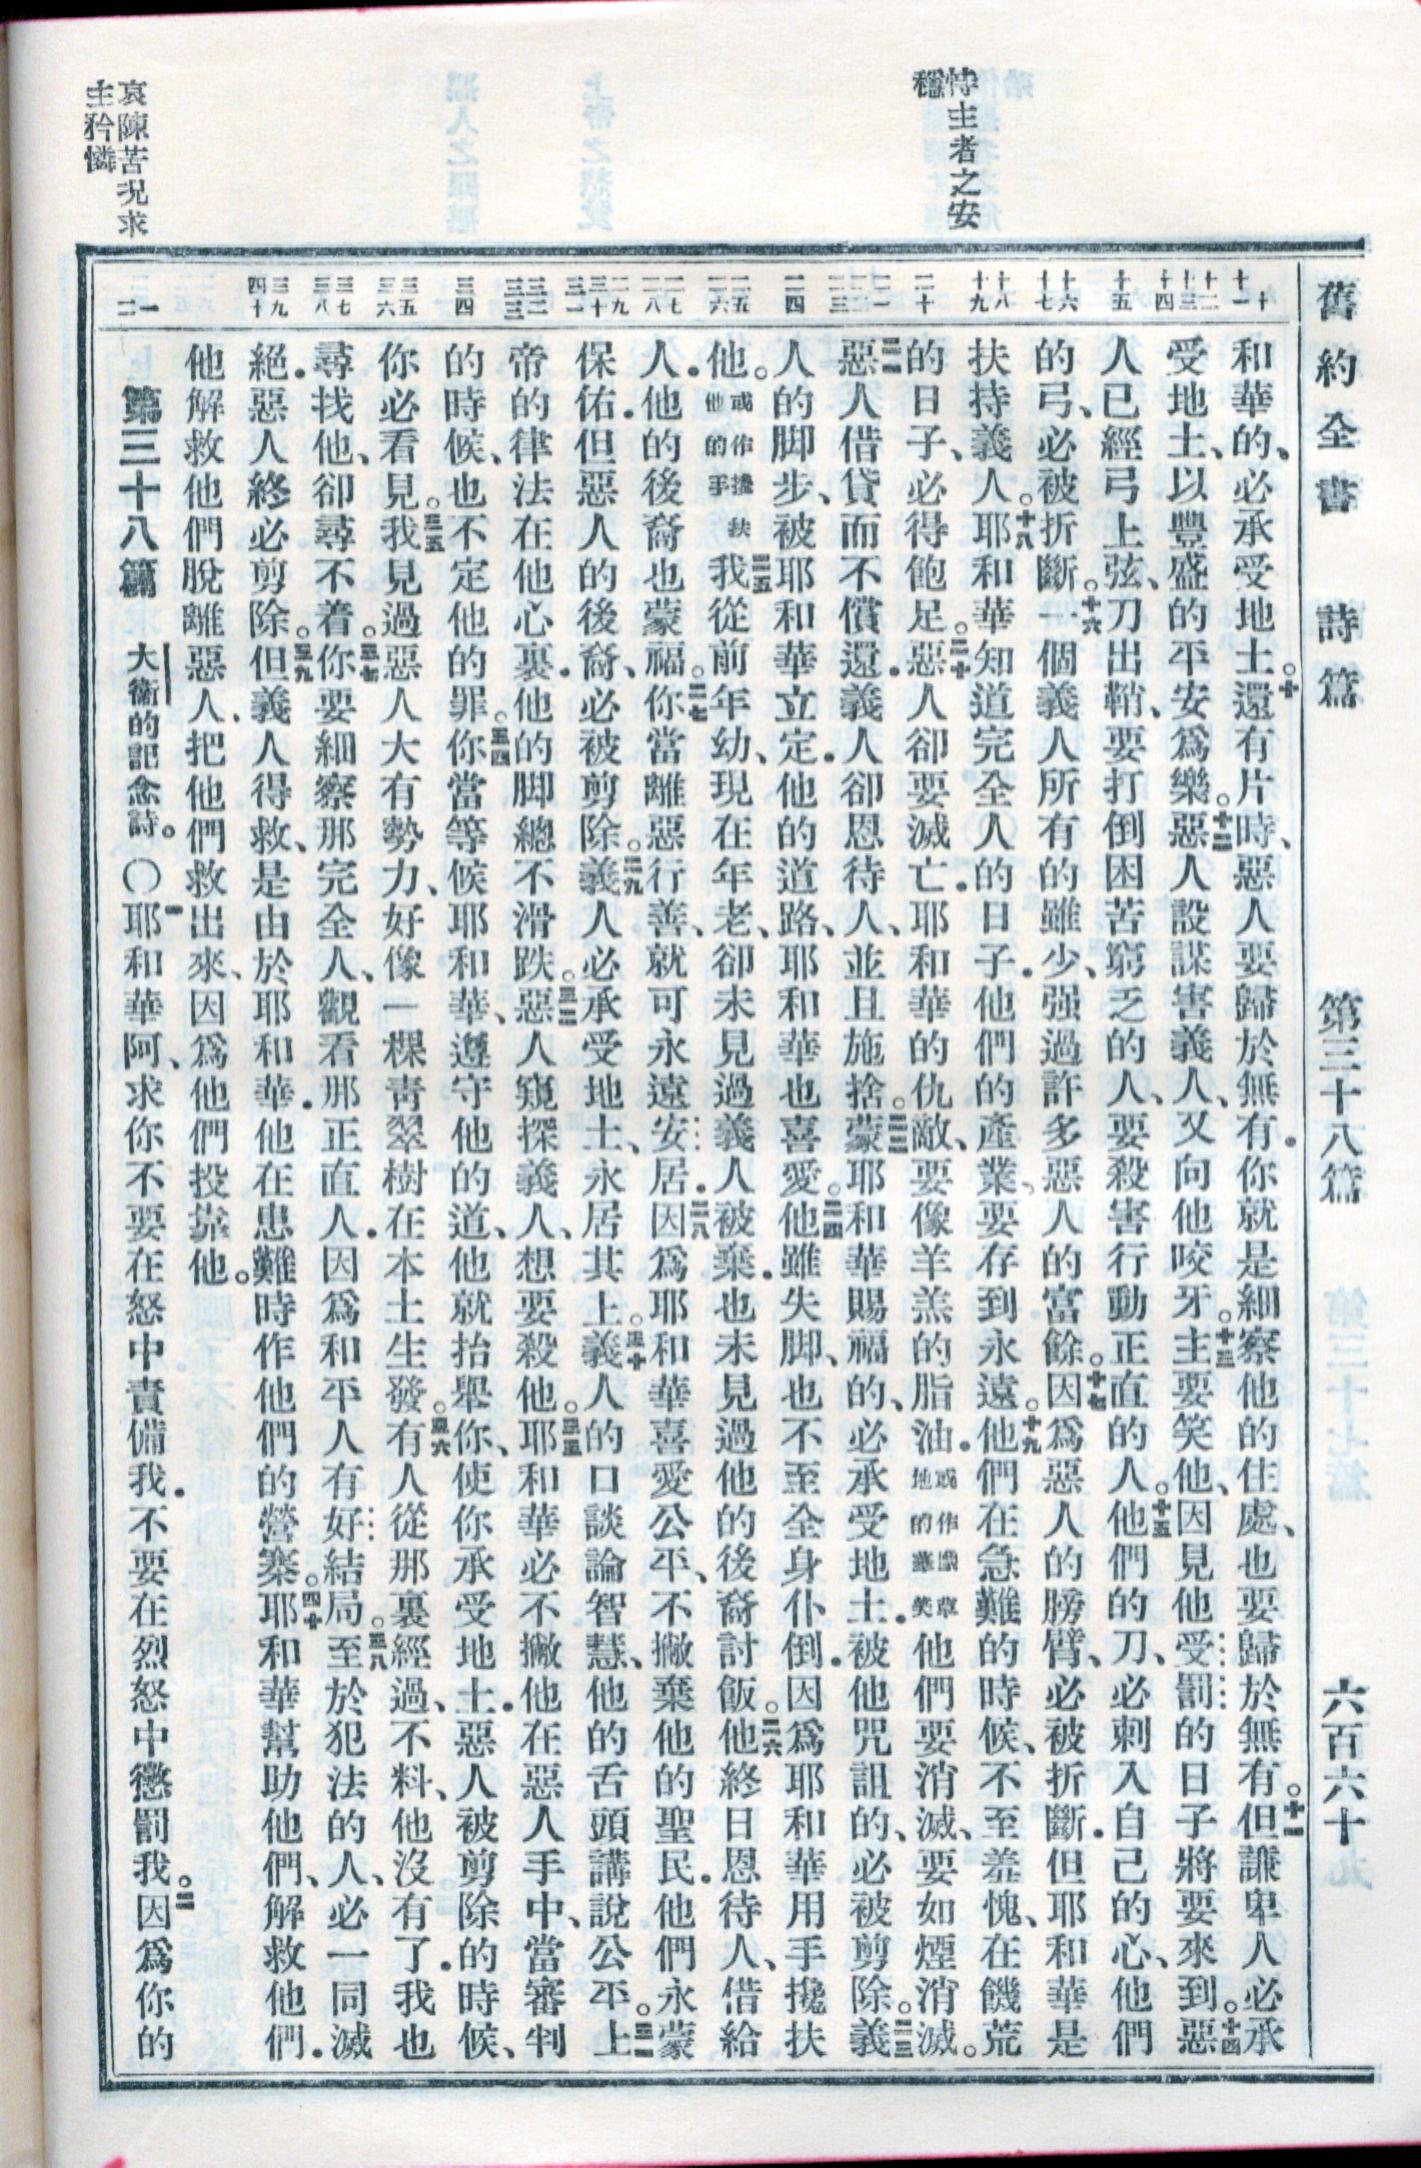 舊約全書 詩篇 第三十八篇 六百六十
恃主者之安
穩
哀陳苦況求
主矜憐
十 十一 十二 十三 十四 十五 十六 十七 十八 十九 二十 二一 二二 二三 二四 二五 二六 二七 二八 二九 三十 三一 三二 三三 三四 三五 三六 三七 三八 三九 四十 一 二
和華的、必承受地土。十還有片時、惡人要歸於無有．你就是細察他的住處、也要歸於無有。十一但謙卑人必承
受地土、以豐盛的平安爲樂。十二惡人設謀害義人、又向他咬牙。十三主要笑他、因見他受罰的日子將要來到。十四惡
人已經弓上弦、刀出鞘、要打倒困苦窮乏的人、要殺害行動正直的人。十五他們的刀、必刺入自己的心、他們
的弓、必被折斷。十六一個義人所有的雖少、强過許多惡人的富餘。十七因爲惡人的膀臂、必被折斷．但耶和華是
扶持義人。十八耶和華知道完全人的日子．他們的產業、要存到永遠。十九他們在急難的時候、不至羞愧、在饑荒
的日子、必得飽足。二十惡人卻要滅亡．耶和華的仇敵、要像羊羔的脂油．或作像草地的華美他們要消滅、要如煙消滅。
二一惡人借貸而不償還．義人卻恩待人、並且施捨。二二蒙耶和華賜福的、必承受地土．被他咒詛的、必被剪除。二三義
人的脚步、被耶和華立定．他的道路、耶和華也喜愛。二四他雖失脚、也不至全身仆倒．因爲耶和華用手攙扶
他。或作攙扶他的手二五我從前年幼、現在年老、卻未見過義人被棄．也未見過他的後裔討飯。二六他終日恩待人、借給
人．他的後裔也蒙福。二七你當離惡行善、就可永遠安居．二八因爲耶和華喜愛公平、不撇棄他的聖民．他們永蒙
保佑．但惡人的後裔、必被剪除。二九義人必承受地土、永居其上。三十義人的口談論智慧、他的舌頭講說公平。三一上
帝的律法在他心裏．他的脚總不滑跌。三二惡人窺探義人、想要殺他。三三耶和華必不撇他在惡人手中、當審判
的時候、也不定他的罪。三四你當等候耶和華、遵守他的道、他就抬舉你、使你承受地土．惡人被剪除的時候、
你必看見。三五我見過惡人大有勢力、好像一棵青翠樹在本土生發。三六有人從那裏經過、不料、他沒有了．我也
尋找他、卻尋不着。三七你要細察那完全人、觀看那正直人．因爲和平人有好結局。三八至於犯法的人、必一同滅
絕．惡人終必剪除。三九但義人得救、是由於耶和華．他在患難時作他們的營寨。四十耶和華幫助他們、解救他們．
他解救他們脫離惡人、把他們救出來、因爲他們投靠他。
第三十八篇 大衞的記念詩。〇一耶和華阿、求你不要在怒中責備我．不要在烈怒中懲罰我。二因爲你的